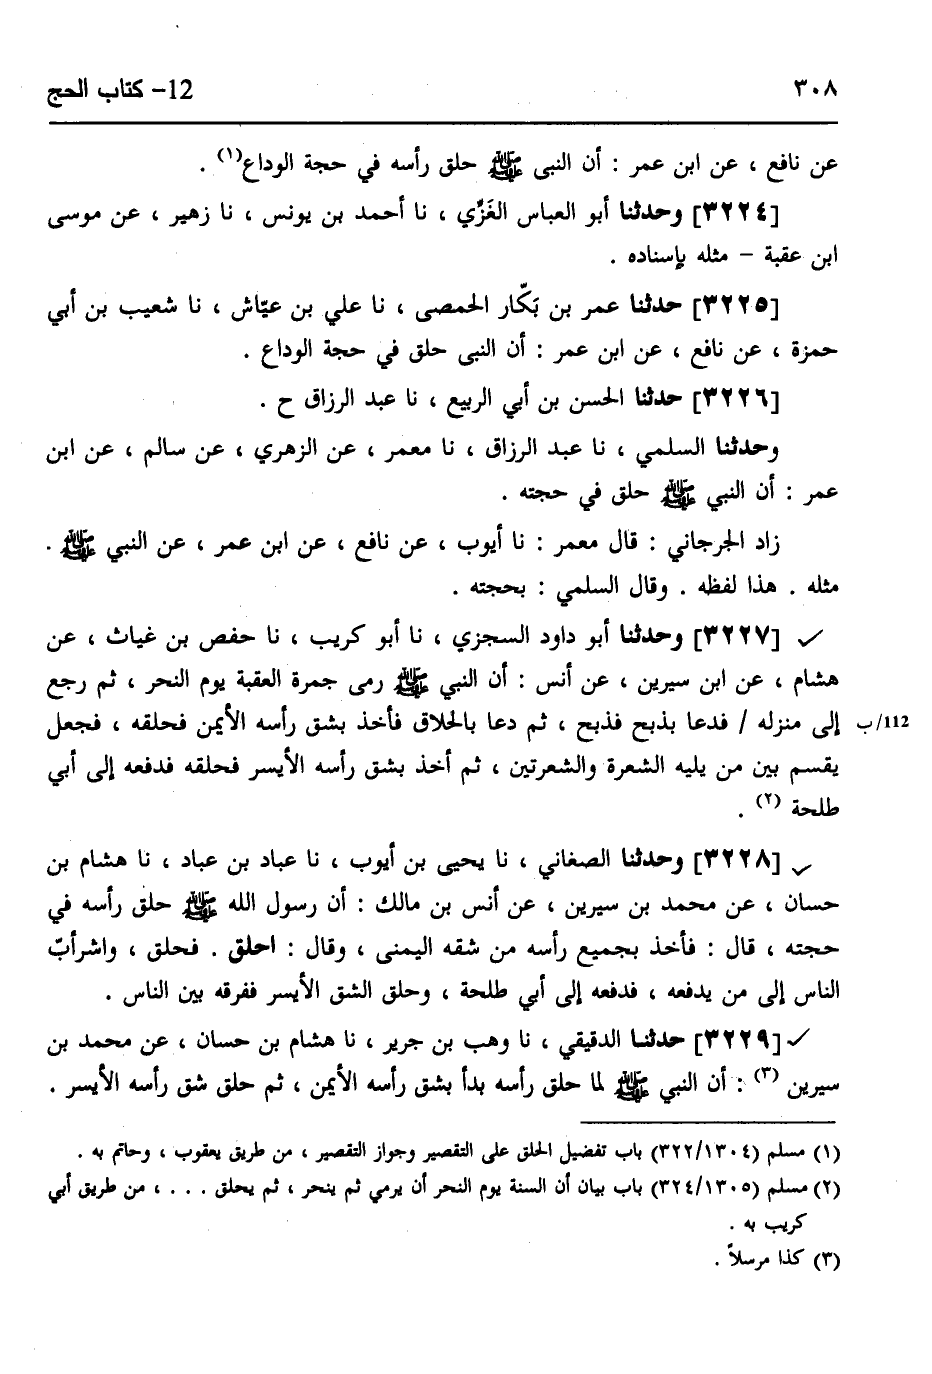 ٣٠٨ 12- كتاب الحج
عن نافع ، عن ابن عمر : أن النبى ﷺ حلق رأسه في حجة الوداع(١) .
[٣٢٢٤] وحدثنا أبو العباس الغَزِّي ، نا أحمد بن يونس ، نا زهير ، عن موسى
ابن عقبة – مثله بإسناده .
[٣٢٢٥] حدثنا عمر بن بَكّار الحمصى ، نا علي بن عيّاش ، نا شعيب بن أبي
حمزة ، عن نافع ، عن ابن عمر : أن النبى حلق في حجة الوداع .
[٣٢٢٦] حدثنا الحسن بن أبي الربيع ، نا عبد الرزاق ح .
وحدثنا السلمي ، نا عبد الرزاق ، نا معمر ، عن الزهري ، عن سالم ، عن ابن
عمر : أن النبي ﷺ حلق في حجته .
زاد الجرجاني : قال معمر : نا أيوب ، عن نافع ، عن ابن عمر ، عن النبي ﷺ .
مثله . هذا لفظه . وقال السلمي : بحجته .
✓ [٣٢٢٧] وحدثنا أبو داود السجزي ، نا أبو كريب ، نا حفص بن غياث ، عن
هشام ، عن ابن سيرين ، عن أنس : أن النبي ﷺ رمى جمرة العقبة يوم النحر ، ثم رجع
112/ب إلى منزله / فدعا بذبح فذبح ، ثم دعا بالحلاق فأخذ بشق رأسه الأيمن فحلقه ، فجعل
يقسم بين من يليه الشعرة والشعرتين ، ثم أخذ بشق رأسه الأيسر فحلقه فدفعه إلى أبي
طلحة (٢) .
✓ [٣٢٢٨] وحدثنا الصغاني ، نا يحيى بن أيوب ، نا عباد بن عباد ، نا هشام بن
حسان ، عن محمد بن سيرين ، عن أنس بن مالك : أن رسول الله ﷺ حلق رأسه في
حجته ، قال : فأخذ بجميع رأسه من شقه اليمنى ، وقال : احلق . فحلق ، واشرأبّ
الناس إلى من يدفعه ، فدفعه إلى أبي طلحة ، وحلق الشق الأيسر ففرقه بين الناس .
✓ [٣٢٢٩] حدثنا الدقيقي ، نا وهب بن جرير ، نا هشام بن حسان ، عن محمد بن
سيرين (٣) : أن النبي ﷺ لما حلق رأسه بدأ بشق رأسه الأيمن ، ثم حلق شق رأسه الأيسر .
(١) مسلم (٣٢٢/١٣٠٤) باب تفضيل الحلق على التقصير وجواز التقصير ، من طريق يعقوب ، وحاتم به .
(٢) مسلم (٣٢٤/١٣٠٥) باب بيان أن السنة يوم النحر أن يرمي ثم ينحر ، ثم يحلق . . . ، من طريق أبي
كريب به .
(٣) كذا مرسلاً .